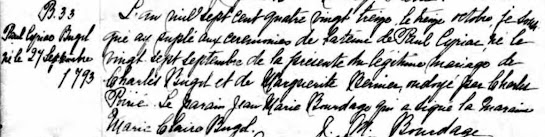 B. 33
Paul Cyriac Bugel
né le 27 Septembre
1793
L'an mil sept cent quatre vingt treize, le treize octobre je soussi
qué ai suplé aux ceremonies de Paul Cyriac, né le
vingt sept septembre de la presente du légitime mariage de
Charles Bugel et de Marguerite Bernier, ondoyé par Charles
Poirié. Le parain Jean Marie Bourdage qui a signé la maraine
Marie Claire Bugel. J. M. Bourdage